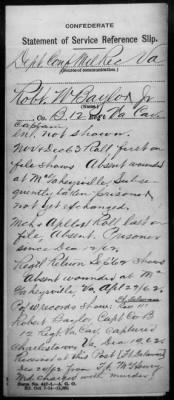 CONFEDERATE
Statement of Service Reference Slip.
Dept Conf Mil Rec Va
(Source of communication.)
Robt W Baylor Jr
(Name.)
Co. B. 12 Va Cav
Captain
Int. not shown.
Nov & Dec 63 Roll first on
file shows Absent wounded
at McGaheysville, Subse-
quently taken prisoner
not yet exchanged.
Roll last on
file, Absent. Prisoner
since Dec 12/62.
Regtl Return shows
Absent wounded at Mc
Gaheysville, Va, Apl 27/62.
P of W records show:
Robert Baylor Capt Co B
12 Regt Va Cav. Captured
Charlestown Va. Dec 62
Received at this Post Ft Delaware
Dec 20/62 from Ft McHenry
Md charged with murder